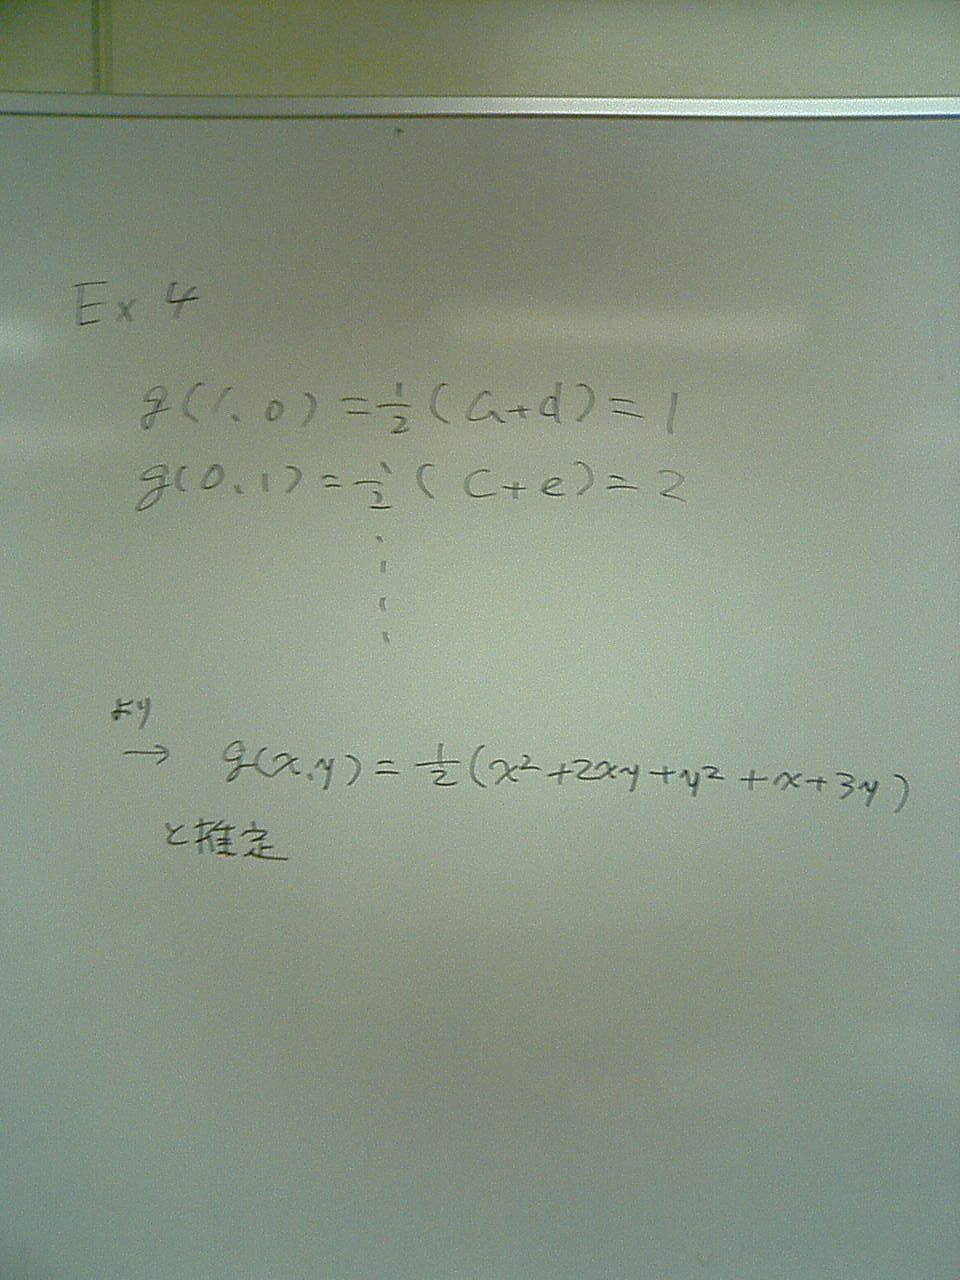 Ex 4
g(1.0)=½(a+d)=1
g(0.1)=½(c+e)=2
より
→ g(x.y)=½(x²+2xy+y²+x+3y)
と推定